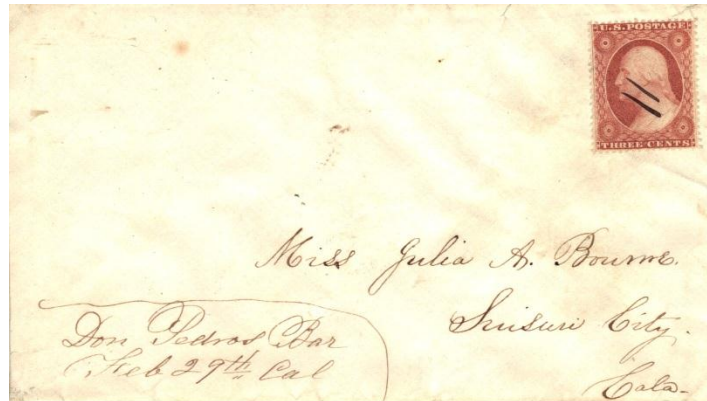 U.S. POSTAGE
THREE CENTS
Miss Julia A. Bourne.
Suisun City.
Cala-
Don Pedros Bar
Feb 29th Cal